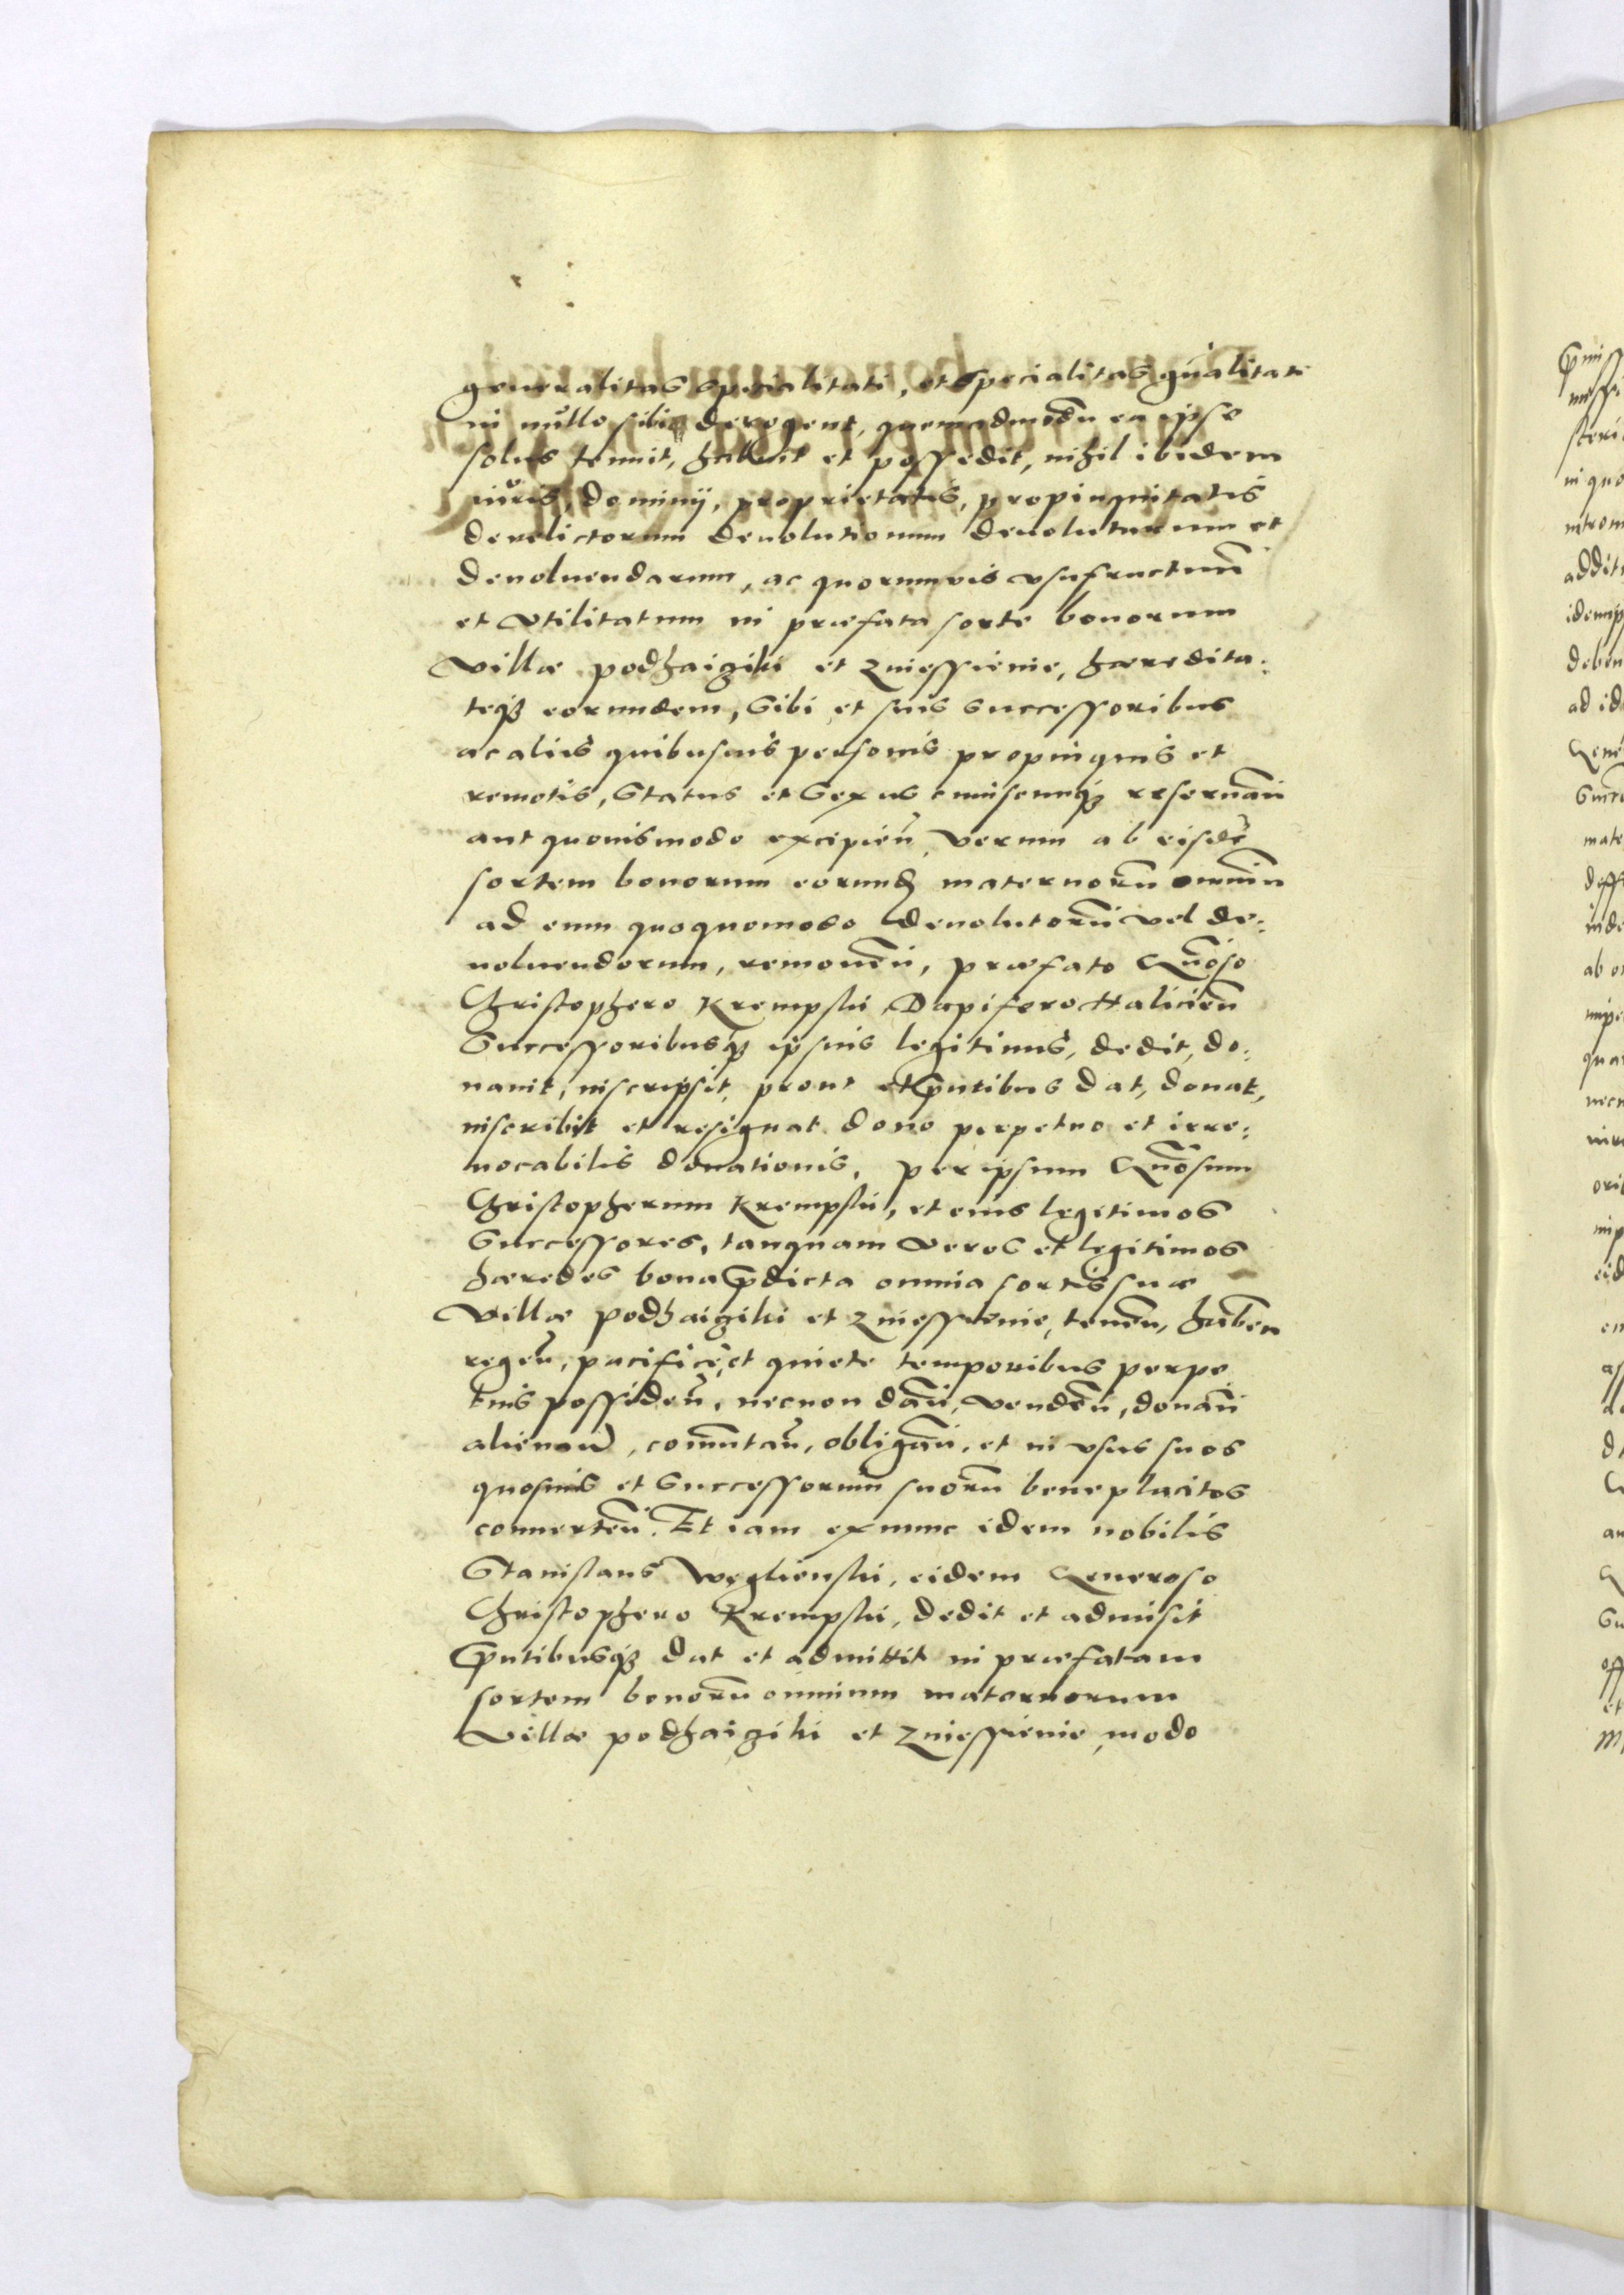 generalitas specialitati, et specialitas gnalitati
in nullo sibi derogent, quemadmodu ea ipse
solus tenuit, habuit et possedit, nihil ibidem
iuris, dominij, proprietatis, propinquitatis
derelictorum deuolutionum deuoluturum et
deuoluendarum, ac quorumvis vsufructuu
et vtilitatum in præfata sorte bonorum
Villæ podhaigiki et Zniessienie, hæredita:
teq3 eorundem, Sibi et suis Successoribus
ac aliis quibusuis personis propinquis et
remotis, Status et Sexus cuiuscunq3 reseruan
aut quouismodo excipien, verum ab eisde
sortem bonorum eorund maternoru omniu
ad eum quoquomodo deuolutoru vel de:
uoluendorum, remouen, præfato Gnoso
Christophero Krempski Dapifero Halicien
Successoribusq3 ipsius legitimis, dedit, do:
nauit, inscripsit, prout et pntibus dat, donat,
inscribit et resignat dono perpetuo et irre:
uocabilis donationis, per ipsum Gnosum
Christopherum Krempski, et eius legitimos
Successores, tanquam veros et legitimos
hæredes bona pdicta omnia sortis suæ
Villæ podhaigiki et Zniessienie, tenen, haben
regen, pacifice, et quiete temporibus perpe
tuis possiden, necnon dan, venden, donan
alienan, comutan, obligan, et in vsus suos
quosuis et Successorum suoru beneplacitos
conuerten. Et iam exnunc idem nobilis
Stanislaus Weglienski, eidem Generoso
Christophero Krempski, dedit et admisit
pntibusq3 dat et admittit in præfatam
sortem bonoru omnium maternorum
Villæ podhaigiki et Zniessienie, modo